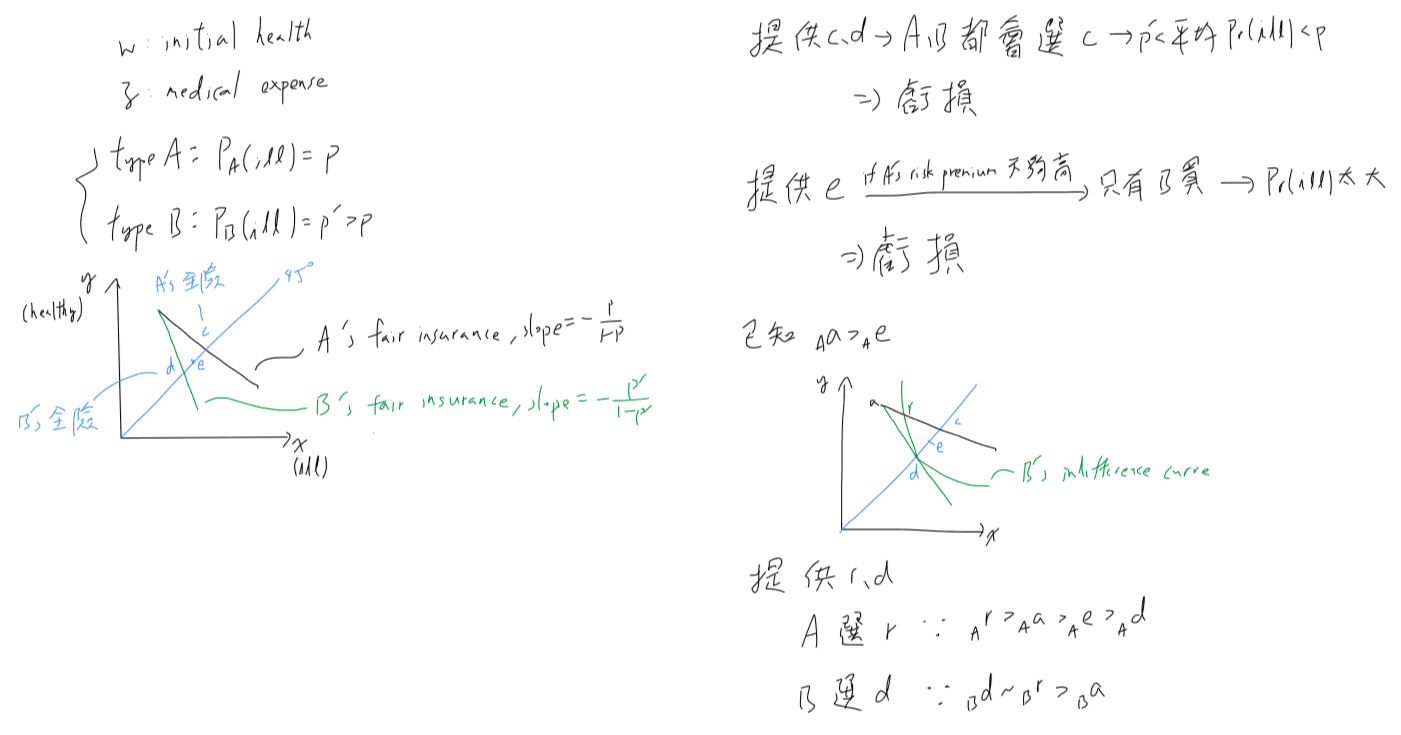 w: initial health
z: medical expense
type A: P_A(ill) = p
type B: P_B(ill) = p' > p
y
(healthy)
A's 全險
45°
c
d
e
A's fair insurance, slope = -p/(1-p)
B's 全險
B's fair insurance, slope = -p'/(1-p')
x
(ill)
提供 c、d → A、B 都會選 c → p'< 平均 Pr(ill) < p
⇒ 虧損
提供 e if A's risk premium 不夠高 → 只有 B 買 → Pr(ill) 太大
⇒ 虧損
已知 _A a >_A e
y
a
r
c
e
d
B's indifference curve
x
提供 r、d
A 選 r ∵ _A r >_A a >_A e >_A d
B 選 d ∵ _B d ~_B r >_B a